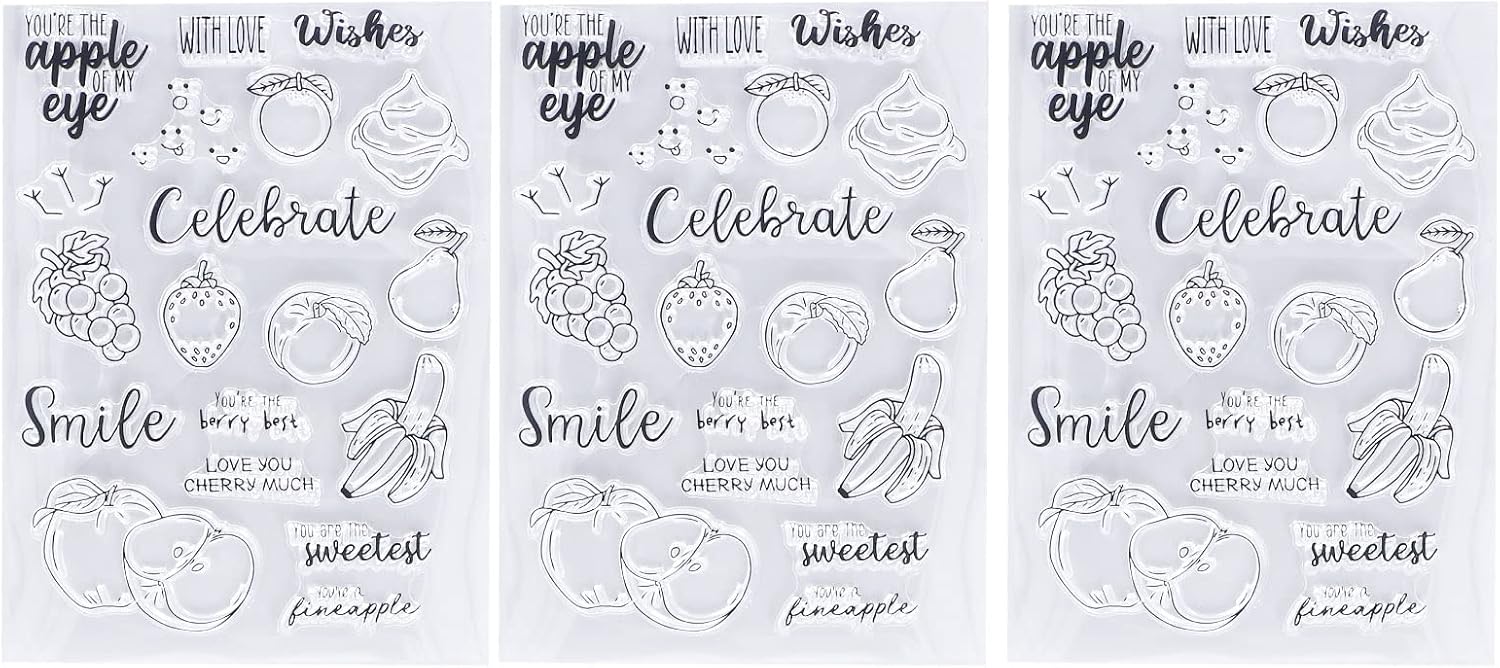 YOU'RE THE
apple
OF MY
eye
WITH LOVE
Wishes
Celebrate
Smile
YOU'RE THE
berry best
LOVE YOU
CHERRY MUCH
YOU ARE THE
sweetest
YOU'RE A
fineapple
YOU'RE THE
apple
OF MY
eye
WITH LOVE
Wishes
Celebrate
Smile
YOU'RE THE
berry best
LOVE YOU
CHERRY MUCH
YOU ARE THE
sweetest
YOU'RE A
fineapple
YOU'RE THE
apple
OF MY
eye
WITH LOVE
Wishes
Celebrate
Smile
YOU'RE THE
berry best
LOVE YOU
CHERRY MUCH
YOU ARE THE
sweetest
YOU'RE A
fineapple